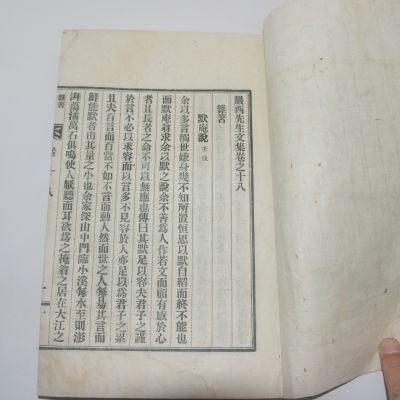 巖西先生文集卷之十八
雜著
默庵說 壬戌
余以多言觸世嫌身幾不知所置恒思以默自韜而終不能也
而默庵翁求余以默之說余不善為人作若文而顧有感於心
者且長者之命不可以無應也傳曰其默足以容夫君子之謹
於言不必以求容而以言多不見容於人亦足以為君子之累
且夫百言而百當不如不言而動人然而世之人每易其言而
鮮能默者由其量之小也余家深山中門臨小溪每水至則澎
湃蕩潏萬石俱鳴使人厭聽而耳欲為之掩翁之居在大江之
雜著
卷十八
一